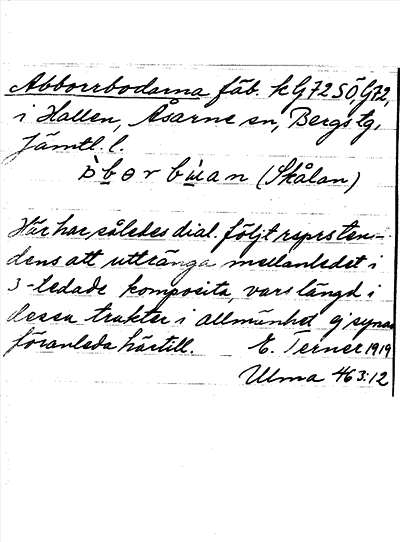 Abborrbodarna fäb. k G72 SÖ, G72,
i Hallen, Åsarne sn, Bergs tg,
Jämtl. l.
àbɵrbùan (Skålan)
Här har således dial. följt tens-
dens att utträнga mellanledet i
3-ledade komposita, vars längd i
dessa trakter i allmänhet synas
föranleda härtill. E. Terner 1919
Ulma 463:12